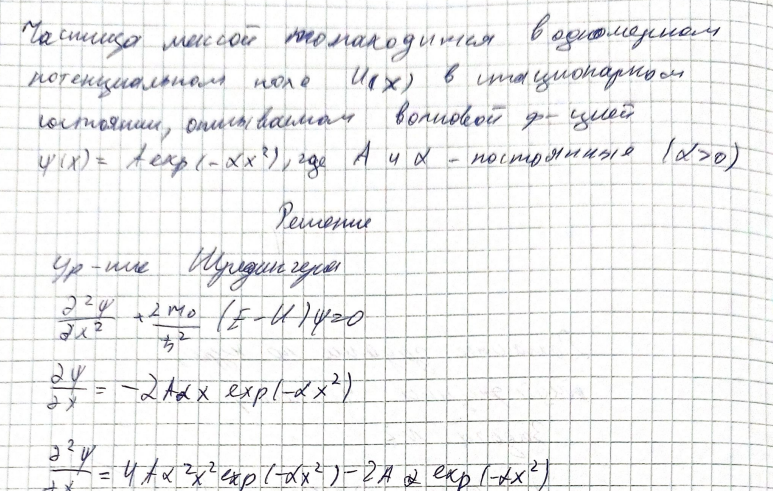 Частица массой m₀ находится в одномерном
потенциальном поле U(x) в стационарном
состоянии, описываемом волновой ф-цией
ψ(x) = A exp(-αx²), где A и α - постоянные (α>0)
Решение
Ур-ние Шредингера
∂²ψ/∂x² + 2m₀/ħ² (E-U)ψ=0
∂ψ/∂x = -2Aαx exp(-αx²)
∂²ψ/∂x = 4Aα²x² exp(-αx²) - 2Aα exp(-αx²)